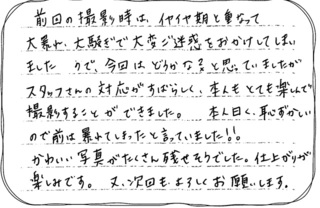 前回の撮影時は、イヤイヤ期と重なって
大暴れ、大騒ぎで大変ご迷惑をおかけしてしまい
ました ので、今回はどうかなぁと思っていましたが
スタッフさんの対応がすばらしく、本人もとても楽しんで
撮影することができました。 本人曰く、恥ずかしい
ので前は暴れてしまったと言っていました!!
かわいい写真がたくさん残せそうでした。仕上がりが
楽しみです。 又、次回もよろしくお願いします。